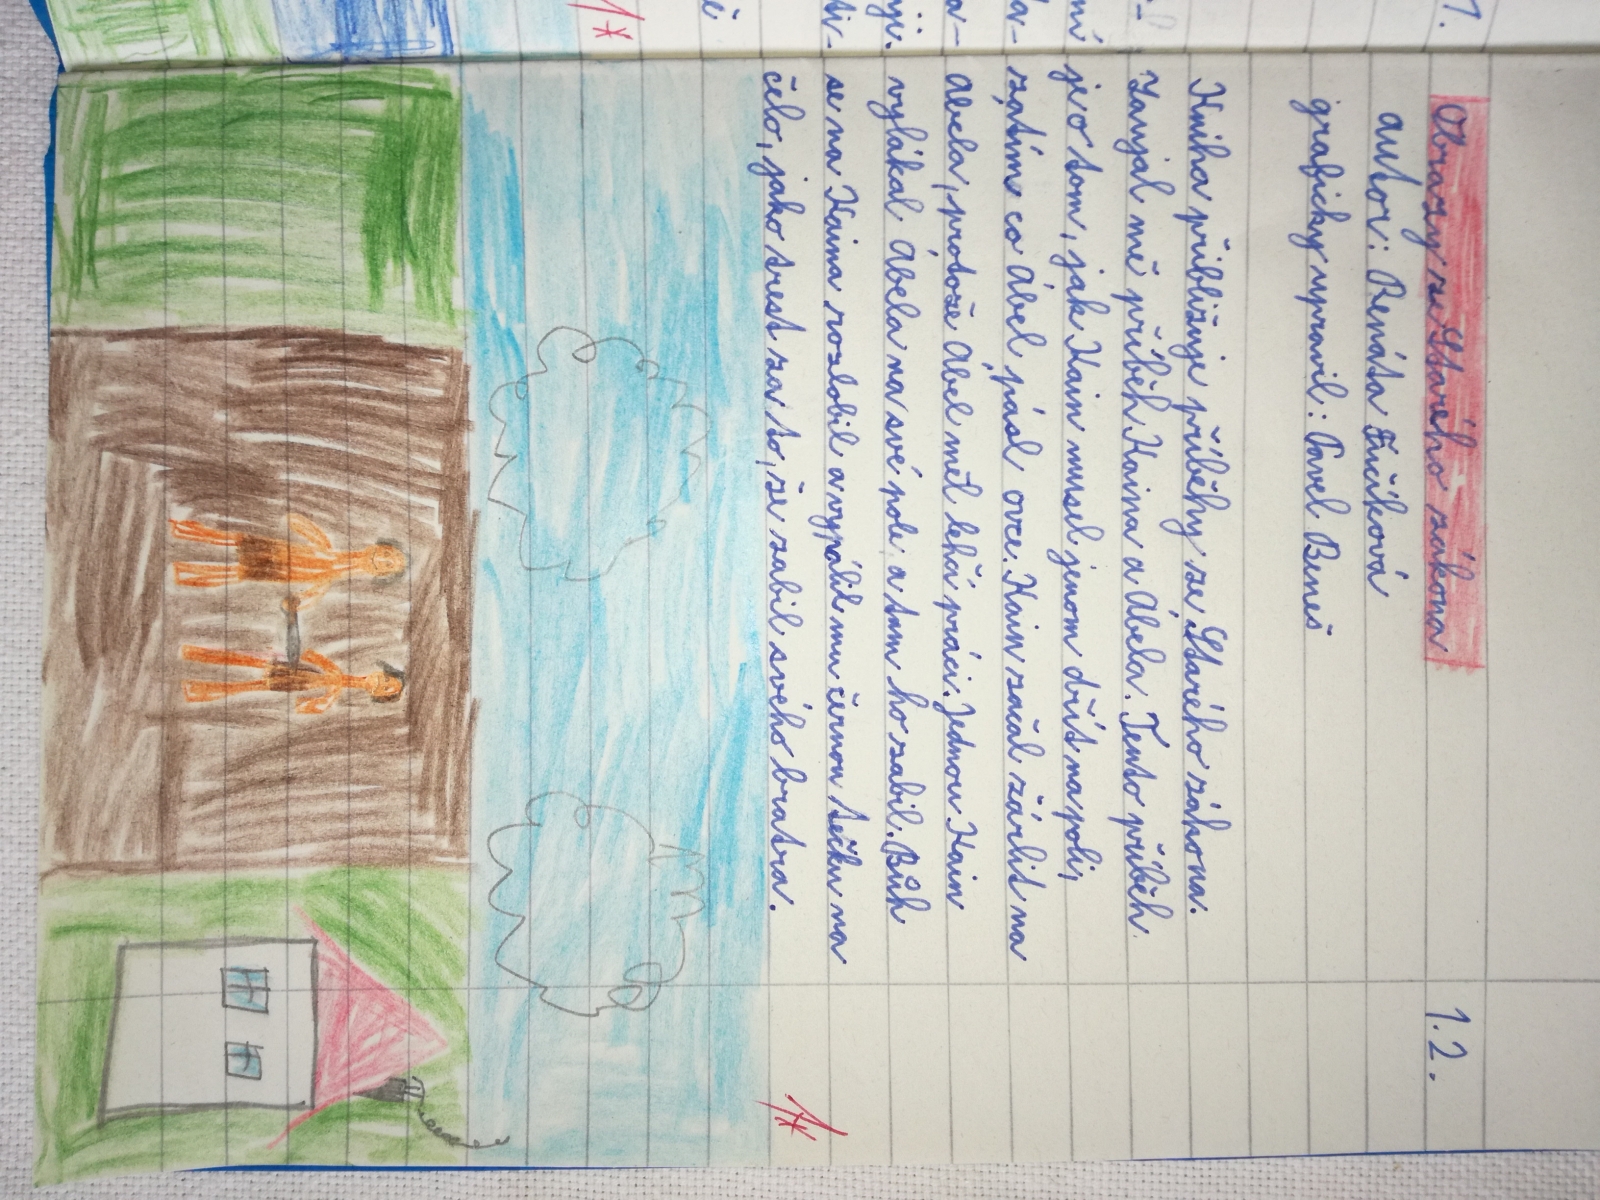 1.
1*
Obrazy ze Starého zákona 1.2.
autor: Renáta Fučíková
graficky upravil: Pavel Beneš
Kniha přibližuje příběhy ze Starého zákona.
Zaujal mě příběh Kaina a Ábela. Tento příběh
je o tom, jak Kain musel jenom dřít na poli,
zatím co Ábel pásl ovce. Kain začal žárlit na
Ábela, protože Ábel měl lehčí práci. Jednou Kain
vylákal Ábela na své pole a tam ho zabil. Bůh
se na Kaina rozlobil a vypálil mu černou tečku na
čelo, jako trest za to, že zabil svého bratra.
1*